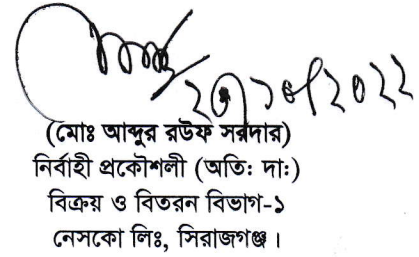 (মোঃ আব্দুর রউফ সরদার)
নির্বাহী প্রকৌশলী (অতি: দা:)
বিক্রয় ও বিতরন বিভাগ-১
নেসকো লিঃ, সিরাজগঞ্জ।